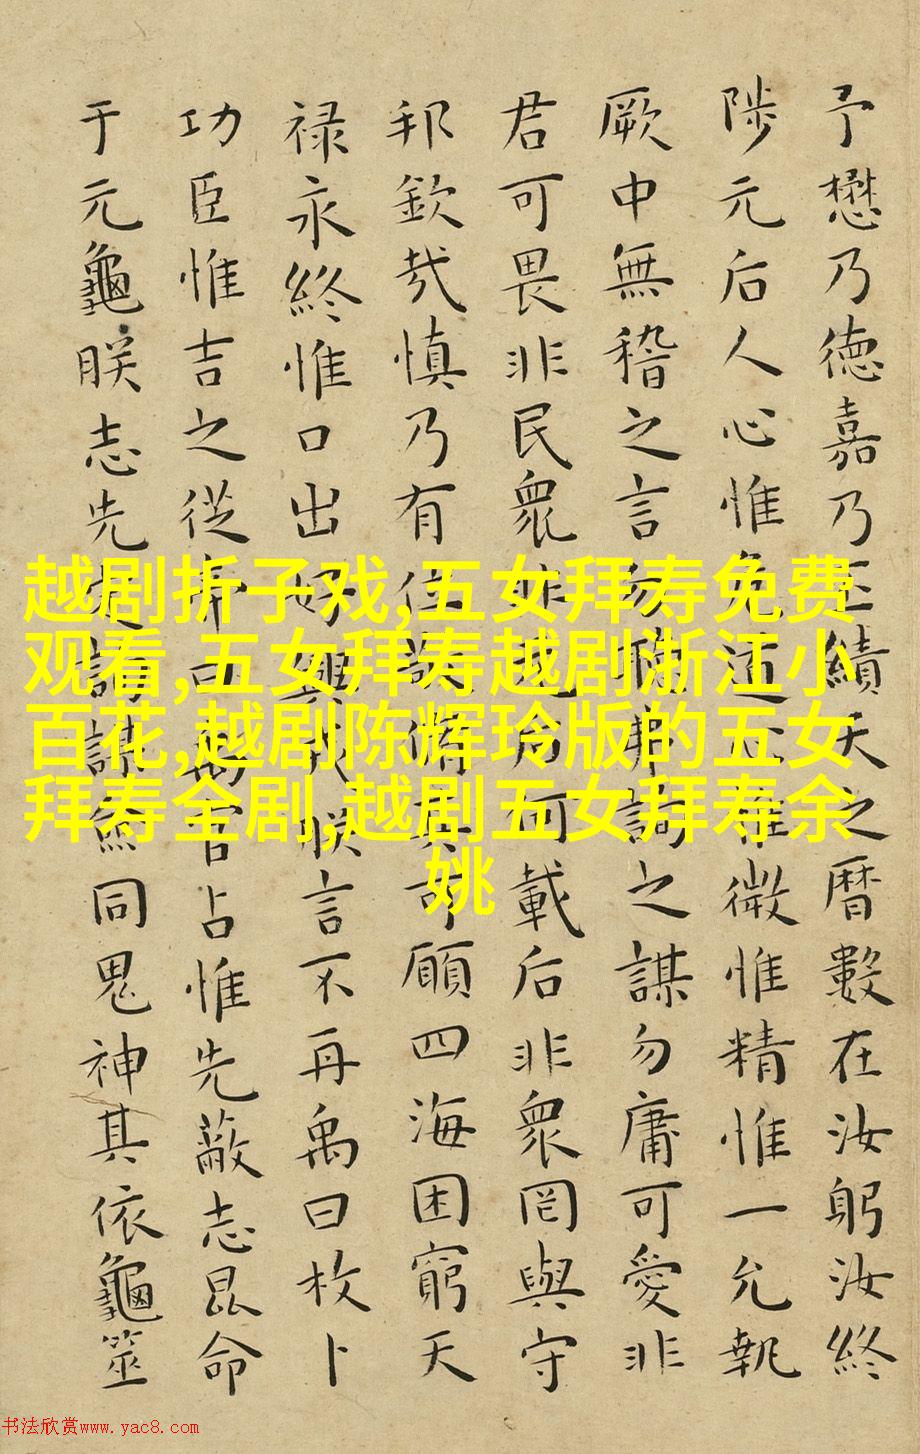 予懋乃德嘉乃丕績天之暦數在汝躬汝終
陟元后人心惟危道心惟微惟精惟一允執
厥中無稽之言勿聽弗詢之謀勿庸可愛非
君可畏非民衆非元后何載后非衆罔與守
邦欽哉慎乃有位敬脩其可願四海困窮天
禄永終惟口出好興戎朕言不再禹曰枚卜
功臣惟吉之從帝曰禹官占惟先蔽志昆命
于元龜朕志先定詢謀僉同鬼神其依龜筮
越剧折子戏,五女拜寿免费
观看,五女拜寿越剧浙江小
百花,越剧陈辉玲版的五女
拜寿全剧,越剧五女拜寿余
姚
书法欣赏www.yac8.com